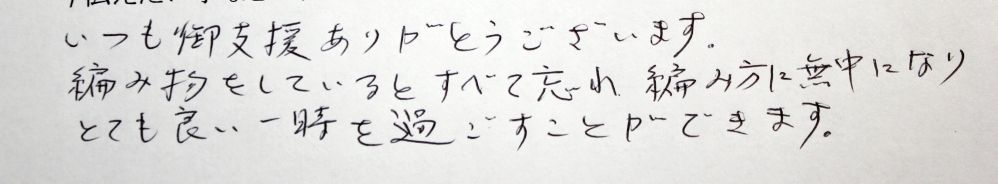 いつも御支援ありがとうございます。
編み物をしているとすべて忘れ 編み方に無中になり
とても良い一時を過ごすことができます。